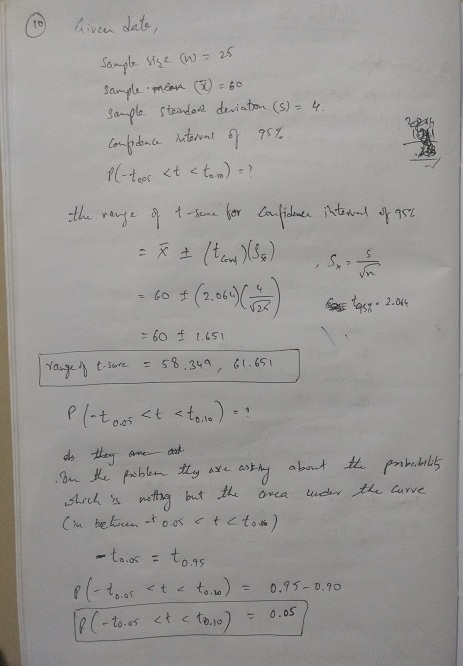 10
Given data,
Sample size (n) = 25
Sample mean (x̄) = 60
Sample standard deviation (S) = 4.
Confidence interval of 95%
P(-t0.05 < t < t0.10) = ?
the range of t-score for confidence interval of 95%
= x̄ ± (tconf)(Sx̄) , Sx = S/√n
= 60 ± (2.064)(4/√25) t95% = 2.064
= 60 ± 1.651
range of t-score = 58.349, 61.651
P(-t0.05 < t < t0.10) = ?
In the problem they are asking about the probability
which is nothing but the area under the curve
(in between -t0.05 < t < t0.10)
-t0.05 = t0.95
P(-t0.05 < t < t0.10) = 0.95-0.90
P(-t0.05 < t < t0.10) = 0.05